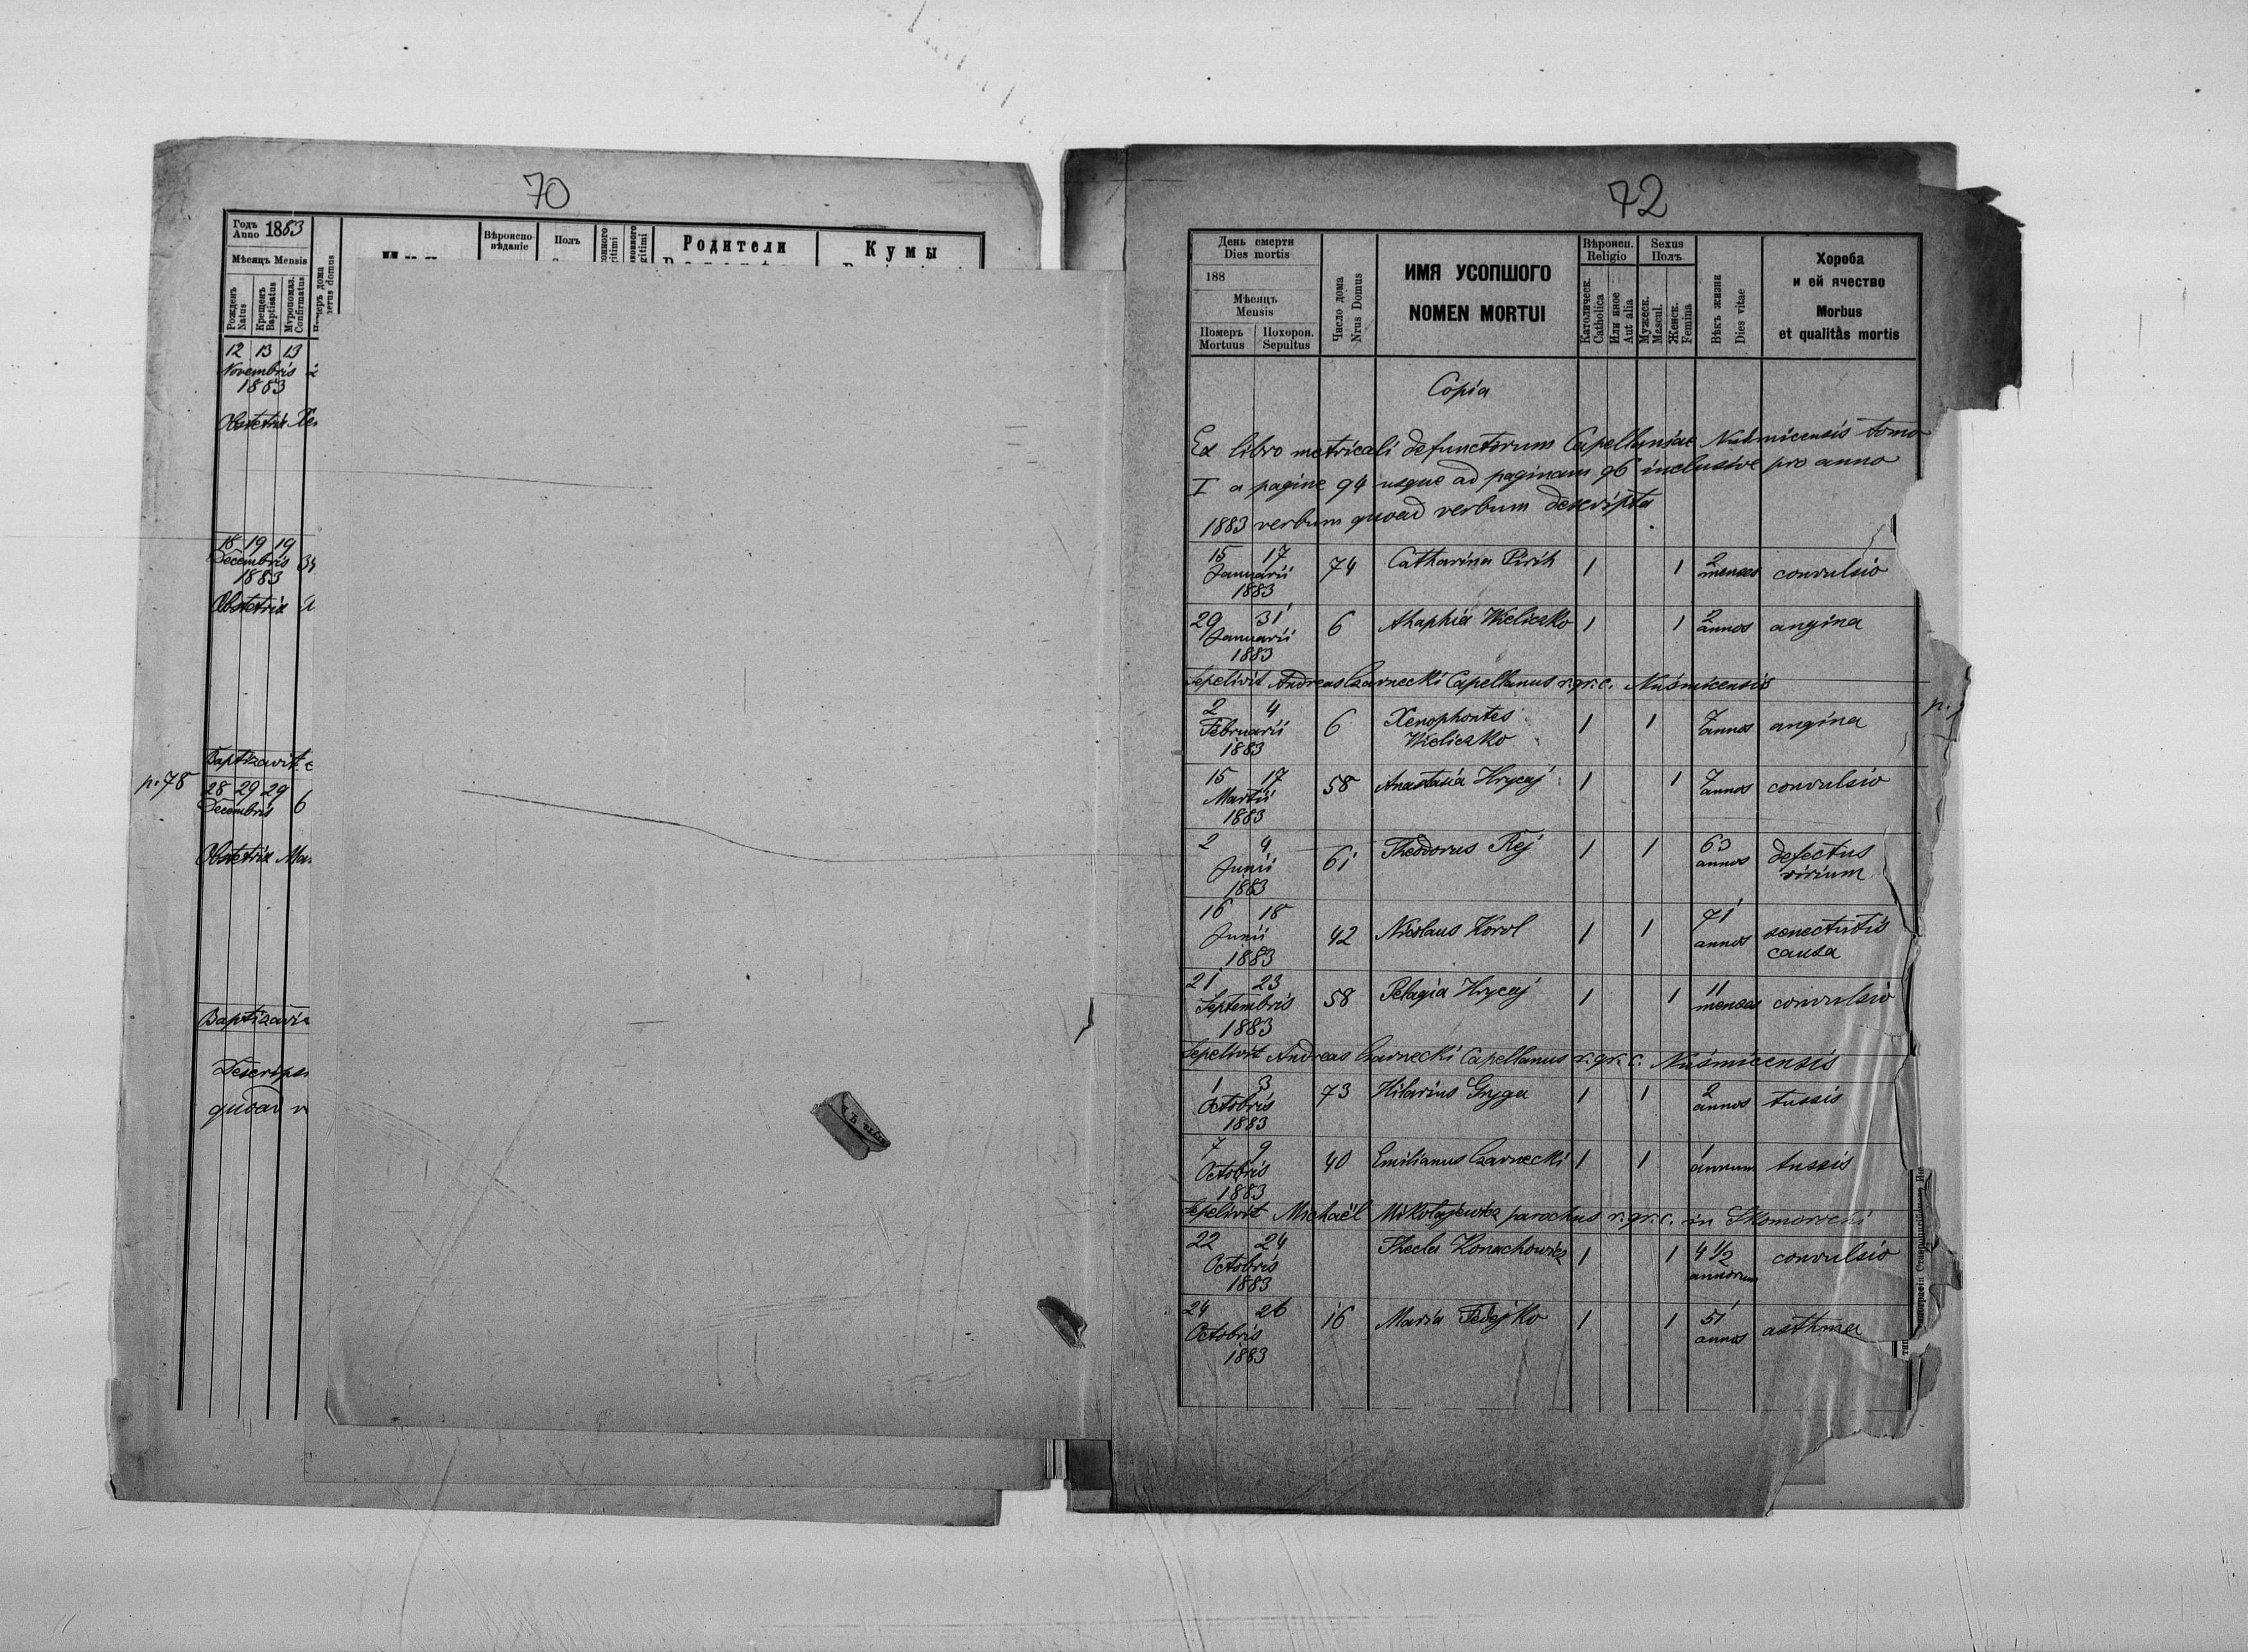 70
Годъ
Anno 1883
Мѣсяцъ Mensis
Рожденъ
Natus
Крещенъ
Baptisatus
Мνропомаз.
Confirmatus
Вѣроиспо-
вѣданіе
Полъ
Родители
Кумы
12 13 13
Novembris
1883
Obstetrix
18 19 19
Decembris
1883
Obstetrix
Baptizavit
p. 78
28 29 29
Decembris 6
Obstetrix
quoad
72
День смерти
Dies mortis
188
Мѣсяцъ
Mensis
Померъ
Mortuus
Похорон.
Sepultus
Число дома
Nrus Domus
ИМЯ УСОПШОГО
NOMEN MORTUI
Вѣроисп.
Religio
Католическ.
Catholica
Или инное
Aut alia
Sexus
Полъ
Мужеск.
Mascul.
Женск.
Femina
Вѣкъ жизни
Dies vitae
Хороба
и ей ячество
Morbus
et qualitas mortis
Copia
Ex libro metricali defunctorum Capellaniae Nuśmicensis tomo
I a pagine 94 usque ad paginam 96 inclusive pro anno
1883 verbum quoad verbum descripta
15 17 Januarii 1883 74 Catharina Pirih 1 1 2 menses convulsio
29 31 Januarii 1883 6 Ahaphia Wieliczko 1 1 2 annos angina
Sepelivit Andreas Czarnecki Capellanus r. gr. c. Nuśmicensis
2 4 Februarii 1883 6 Xenophontes Wieliczko 1 1 7 annos angina
15 17 Martii 1883 58 Anastasia Hrycaj 1 1 7 annos convulsio
2 4 Junii 1883 61 Theodorus Rej 1 1 63 annos defectus virium
16 18 Junii 1883 42 Nicolaus Korol 1 1 71 annos senectutis causa
21 23 Septembris 1883 58 Pelagia Hrycaj 1 1 11 menses convulsio
Sepelivit Andreas Czarnecki Capellanus r. gr. c. Nuśmicensis
1 3 Octobris 1883 73 Hilarius Gryga 1 1 2 annos tussis
7 9 Octobris 1883 40 Emilianus Czarnecki 1 1 1 annum tussis
Sepelivit Michaël Mikołajewicz parochus r. gr. c. in
22 24 Octobris 1883 Thecla Konachowicz 1 1 4 1/2 annorum convulsio
24 26 Octobris 1883 16 Maria Fedejko 1 1 51 annos asthma